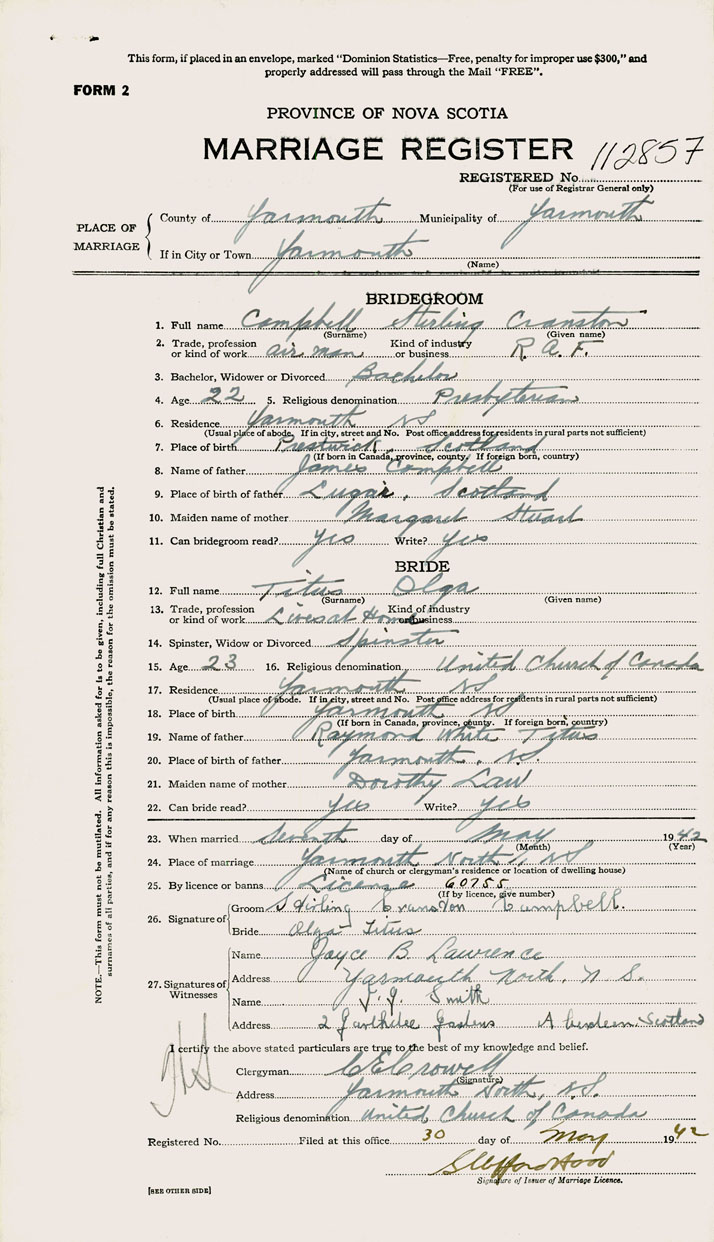 This form, if placed in an envelope, marked "Dominion Statistics—Free, penalty for improper use $300," and
properly addressed will pass through the Mail "FREE".
FORM 2
PROVINCE OF NOVA SCOTIA
MARRIAGE REGISTER 112857
REGISTERED No.
(For use of Registrar General only)
PLACE OF MARRIAGE
County of Yarmouth Municipality of Yarmouth
If in City or Town Yarmouth
(Name)
BRIDEGROOM
1. Full name Campbell Stirling Cranston
(Surname) (Given name)
2. Trade, profession or kind of work air man Kind of industry or business R. A. F.
3. Bachelor, Widower or Divorced Bachelor
4. Age 22 5. Religious denomination Presbyterian
6. Residence Yarmouth NS
(Usual place of abode. If in city, street and No. Post office address for residents in rural parts not sufficient)
7. Place of birth Prestwick, Scotland
(If born in Canada, province, county. If foreign born, country)
8. Name of father James Campbell
9. Place of birth of father Lugar, Scotland
10. Maiden name of mother Margaret Stuart
11. Can bridegroom read? Yes Write? Yes
BRIDE
12. Full name Titus Olga
(Surname) (Given name)
13. Trade, profession or kind of work Lives at Home Kind of industry or business
14. Spinster, Widow or Divorced Spinster
15. Age 23 16. Religious denomination United Church of Canada
17. Residence Yarmouth NS
(Usual place of abode. If in city, street and No. Post office address for residents in rural parts not sufficient)
18. Place of birth Yarmouth NS
(If born in Canada, province, county. If foreign born, country)
19. Name of father Raymond White Titus
20. Place of birth of father Yarmouth, NS.
21. Maiden name of mother Dorothy Law
22. Can bride read? Yes Write? Yes
23. When married Seventh day of May 1942
(Month) (Year)
24. Place of marriage Yarmouth North, NS
(Name of church or clergyman's residence or location of dwelling house)
25. By licence or banns License 60755
(If by licence, give number)
26. Signature of
Groom Stirling Cranston Campbell.
Bride Olga Titus
27. Signatures of Witnesses
Name Joyce B. Lawrence
Address Yarmouth North, N S.
Name J. J. Smith
Address 2 Gardens Aberdeen. Scotland
I certify the above stated particulars are true to the best of my knowledge and belief.
Clergyman C E Crowell
(Signature)
Address Yarmouth North, N.S.
Religious denomination United Church of Canada
Registered No. Filed at this office 30 day of May 1942
Hood
Signature of Issuer of Marriage Licence.
[SEE OTHER SIDE]
NOTE.—This form must not be mutilated. All information asked for is to be given, including full Christian and
surnames of all parties, and if for any reason this is impossible, the reason for the omission must be stated.